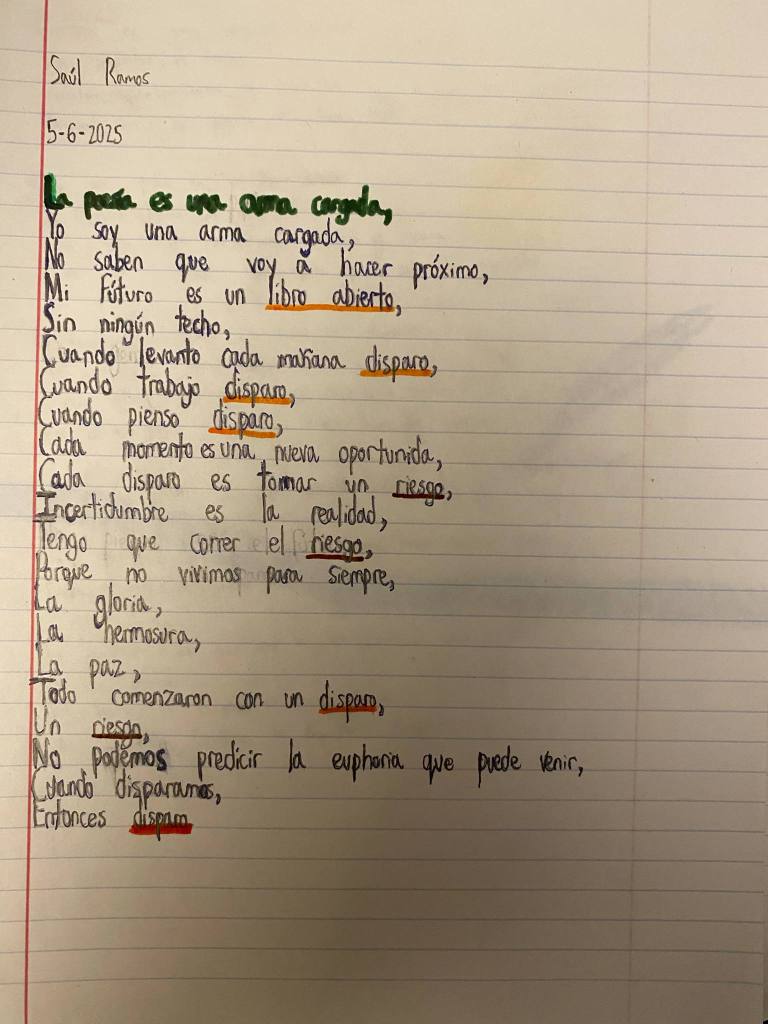 Saúl Ramos
5-6-2025
La poesía es una arma cargada,
Yo soy una arma cargada,
No saben que voy a hacer próximo,
Mi fúturo es un libro abierto,
Sin ningún techo,
Cuando levanto cada mañana disparo,
Cuando trabajo disparo,
Cuando pienso disparo,
Cada momento es una nueva oportunida,
Cada disparo es tomar un riesgo,
Incertidumbre es la realidad,
Tengo que correr el riesgo,
Porque no vivimos para siempre,
La gloria,
La hermosura,
La paz,
Todo comenzaron con un disparo,
Un riesgo,
No podemos predicir la euphoria que puede venir,
Cuando disparamos,
Entonces disparo